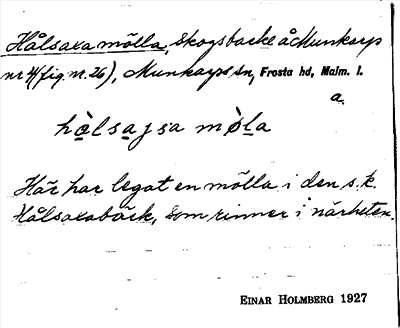 Hålsaxa mölla, Skogsbacke å Munkarp
nr 4 (fig. nr. 26), Munkarps sn, Frosta hd, Malm. l.
a.
hålsajsa möla
Här har legat en mölla i den s.k.
Hålsaxabäck, som rinner i närheten.
EINAR HOLMBERG 1927